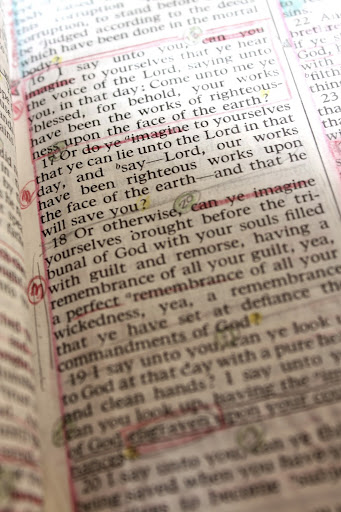 corruption, to stand before
judged according to the deeds
which have been done in the mortal
16 I say unto you, can you
imagine to yourselves that ye hear
the voice of the Lord, saying unto
you, in that day: Come unto me ye
blessed, for behold, your works
have been the works of righteous-
ness upon the face of the earth?
17 Or do ye imagine to yourselves
that ye can lie unto the Lord in that
day, and say—Lord, our works
have been righteous works upon
the face of the earth—and that he
will save you?
18 Or otherwise, can ye imagine
yourselves brought before the tri-
bunal of God with your souls filled
with guilt and remorse, having a
remembrance of all your guilt, yea,
a perfect remembrance of all your
wickedness, yea, a remembrance
that ye have set at defiance the
commandments of God?
19 I say unto you, can ye look
to God at that day with a pure he
and clean hands? I say unto y
can you look up, having the
of God engraven upon your cou
20 I say unto you, can ye th
being saved when you have